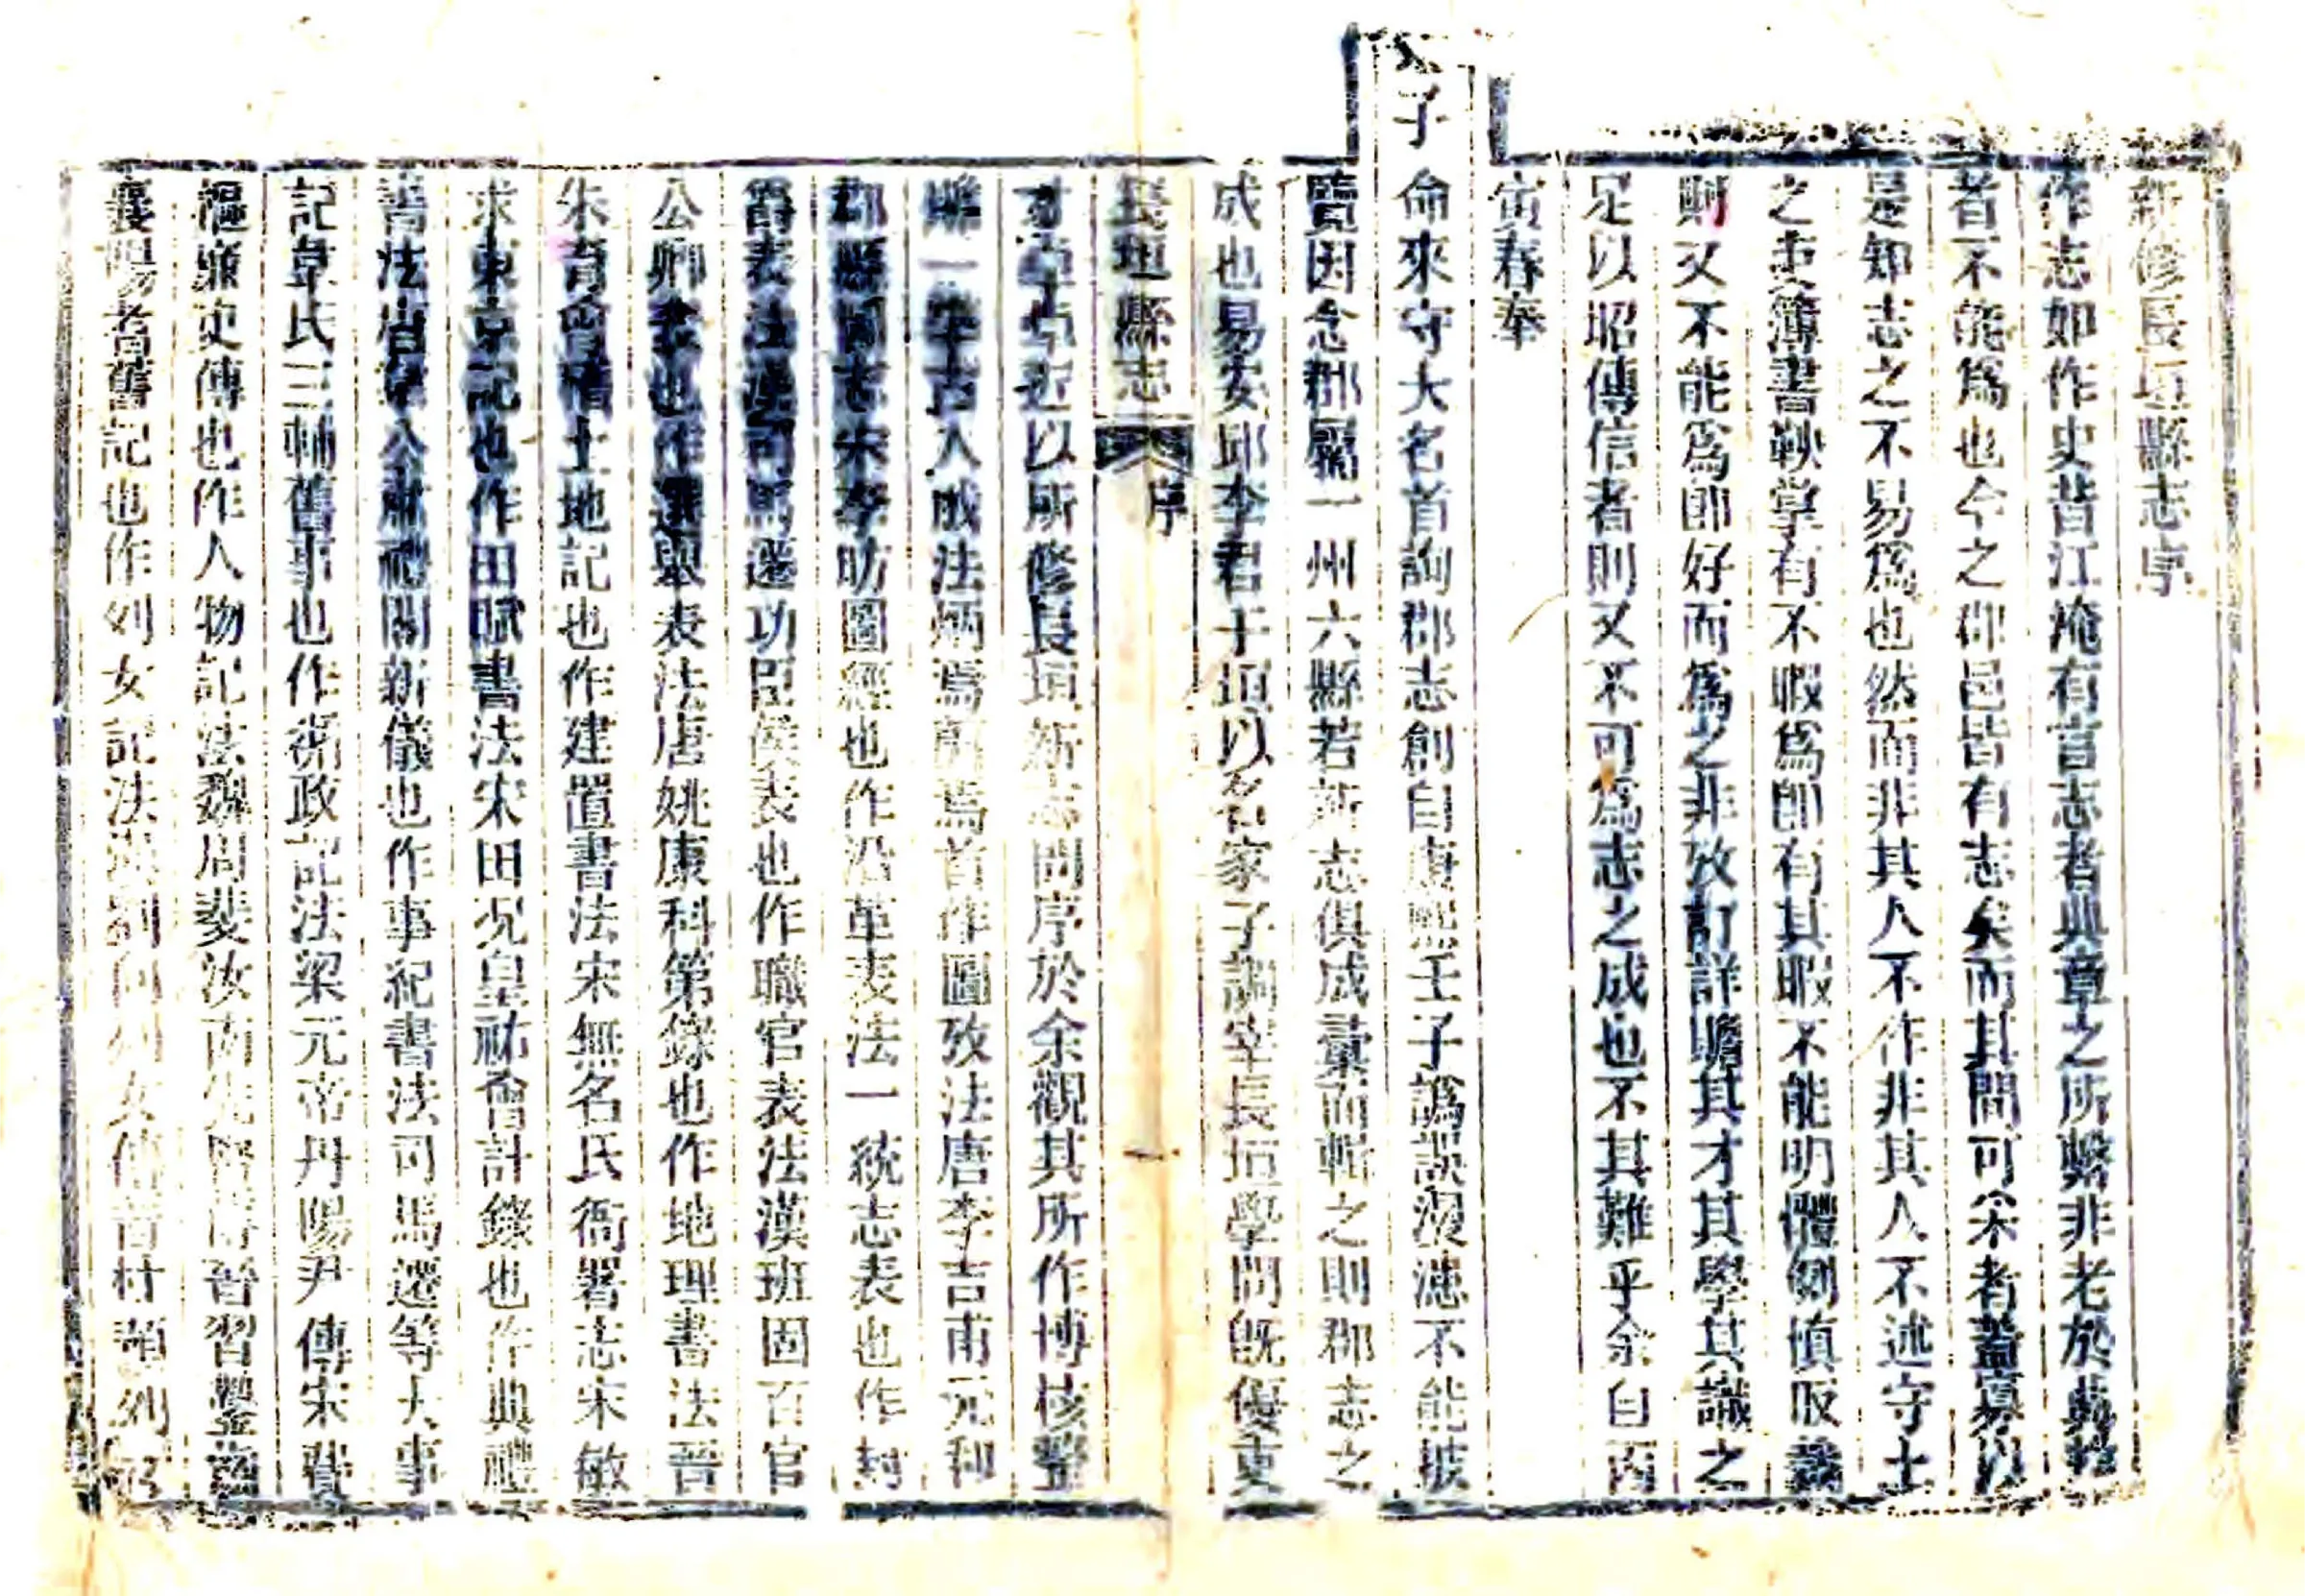 新修長垣縣志序
作志如作史昔江淹有言志者典章之所繫非老於典故
者不能爲也今之郡邑皆有志矣而其間可采者蓋寡以
是知志之不易爲也然而非其人不作非其人不述守土
之吏簿書鞅掌有不暇爲卽有其暇不能明體例慎取裁
則又不能爲卽好而爲之非攷訂詳贍其才其學其識之
足以昭傳信者則又不可爲志之成也不其難乎余自丙
寅春奉
天子命來守大名首詢郡志創自康熙壬子譌誤漫漶不能披
覽因念郡屬一州六縣若新志俱成彙而輯之則郡志之
成也易安邱李君于垣以名家子調宰長垣學問旣優吏
長垣縣志 序
才亦卓近以所修長垣新志問序於余觀其所作博核整
雅一準古人成法炳焉蔚焉首作圖攷法唐李吉甫元和
郡縣圖志宋李昉圖經也作沿革表法一統志表也作封
爵表法漢司馬遷功臣侯表也作職官表法漢班固百官
公卿表也作選舉表法唐姚康科第錄也作地理書法晉
朱育會稽土地記也作建置書法宋無名氏衙署志宋敏
求東京記也作田賦書法宋田况皇祐會計錄也作典禮
書法唐韋公肅禮閣新儀也作事紀書法司馬遷等大事
記韋氏三輔舊事也作循政記法梁元帝丹陽尹傳宋費
樞廉吏傳也作人物記法魏周斐汝南先賢傳晉習鑿齒
襄陽耆舊記也作列女記法漢劉向列女傳晉杜預列